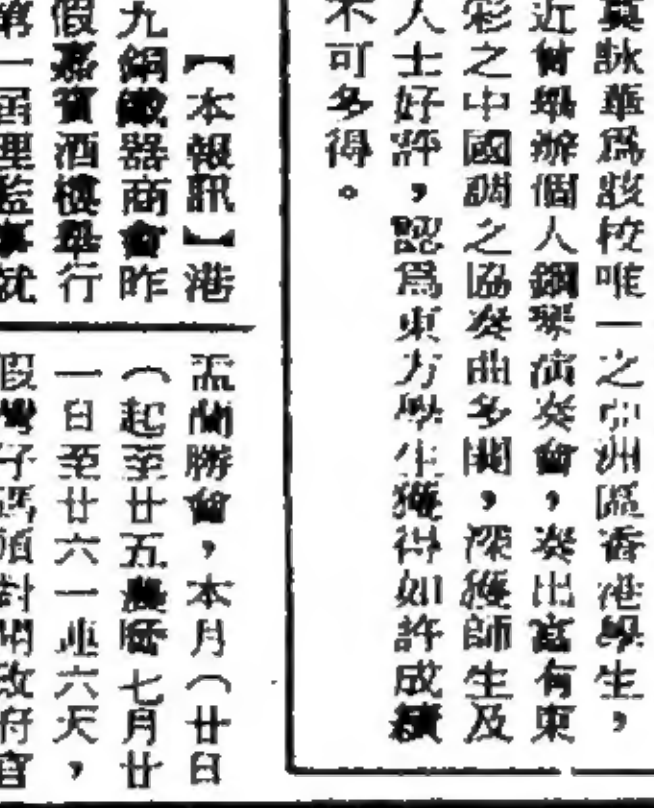 莫詠華為該校唯一之亞洲區香港學生，
近曾舉辦個人鋼琴演奏會，奏出富有東
彩之中國調之協奏曲多闋，深獲師生及
人士好評，認為東方學生獲得如許成績
不可多得。
【本報訊】港
九銅鐵器商會昨
假嘉賓酒樓舉行
第一屆理監事就
盂蘭勝會，本月（廿日
（起至廿五農曆七月廿
一日至廿六一連六天，
假灣仔碼頭對開政府官